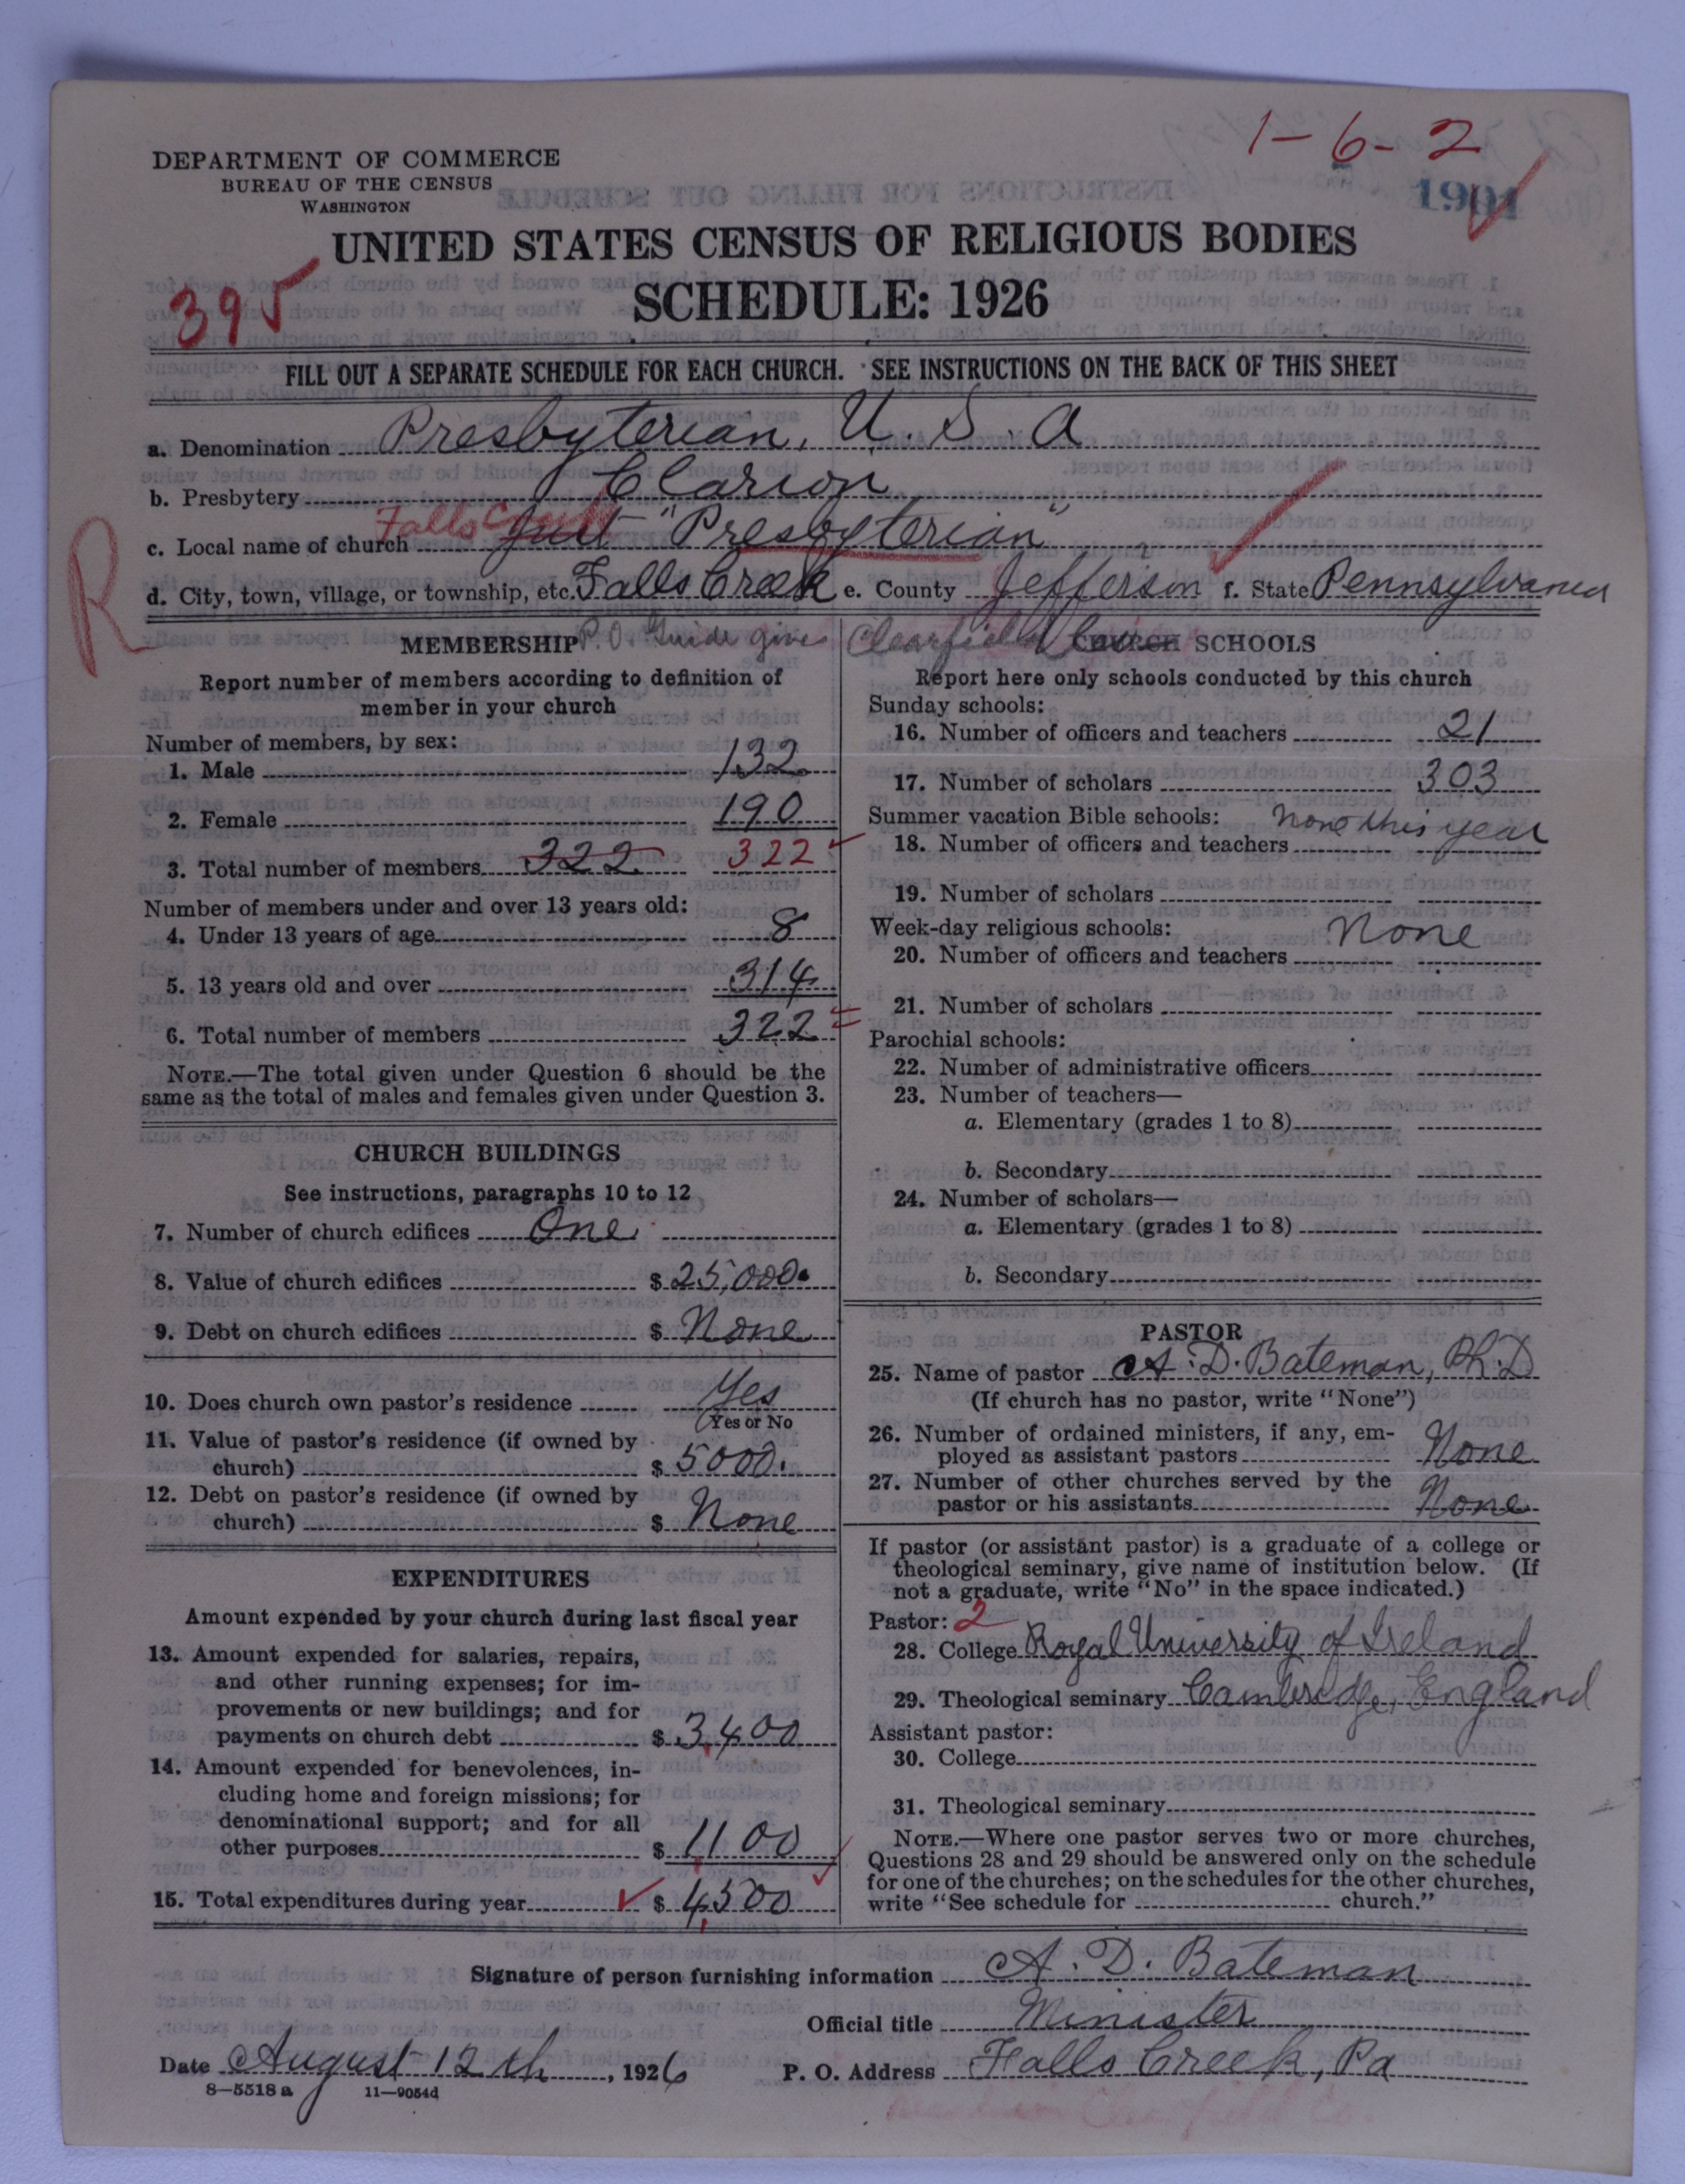 1-6-2
DEPARTMENT OF COMMERCE
BUREAU OF THE CENSUS
WASHINGTON
1901
UNITED STATES CENSUS OF RELIGIOUS BODIES
395
SCHEDULE: 1926
FILL OUT A SEPARATE SCHEDULE FOR EACH CHURCH. SEE INSTRUCTIONS ON THE BACK OF THIS SHEET
a. Denomination Presbyterian, U. S. A
b. Presbytery Clarion
Falls Creek
c. Local name of church Just "Presbyterian"
R
d. City, town, village, or township, etc. Falls Creek e. County Jefferson f. State Pennsylvania
P.O. Guide give Clearfield Co
MEMBERSHIP
Report number of members according to definition of
member in your church
Number of members, by sex:
1. Male 132
2. Female 190
3. Total number of members 322 322
Number of members under and over 13 years old:
4. Under 13 years of age 8
5. 13 years old and over 314
6. Total number of members 322 =
NOTE.—The total given under Question 6 should be the
same as the total of males and females given under Question 3.
CHURCH BUILDINGS
See instructions, paragraphs 10 to 12
7. Number of church edifices One
8. Value of church edifices $ 25,000.
9. Debt on church edifices $ None
10. Does church own pastor's residence Yes
Yes or No
11. Value of pastor's residence (if owned by
church) $ 5000.
12. Debt on pastor's residence (if owned by
church) $ None
EXPENDITURES
Amount expended by your church during last fiscal year
13. Amount expended for salaries, repairs,
and other running expenses; for im-
provements or new buildings; and for
payments on church debt $ 3,400
14. Amount expended for benevolences, in-
cluding home and foreign missions; for
denominational support; and for all
other purposes $ 1,100
15. Total expenditures during year $ 4,500
CHURCH SCHOOLS
Report here only schools conducted by this church
Sunday schools:
16. Number of officers and teachers 21
17. Number of scholars 303
Summer vacation Bible schools: None this year
18. Number of officers and teachers
19. Number of scholars
Week-day religious schools: None
20. Number of officers and teachers
21. Number of scholars
Parochial schools:
22. Number of administrative officers
23. Number of teachers—
a. Elementary (grades 1 to 8)
b. Secondary
24. Number of scholars—
a. Elementary (grades 1 to 8)
b. Secondary
PASTOR
25. Name of pastor A. D. Bateman, Ph.D
(If church has no pastor, write "None")
26. Number of ordained ministers, if any, em-
ployed as assistant pastors None
27. Number of other churches served by the
pastor or his assistants None
If pastor (or assistant pastor) is a graduate of a college or
theological seminary, give name of institution below. (If
not a graduate, write "No" in the space indicated.)
Pastor: 2
28. College Royal University of Ireland
29. Theological seminary Cambridge, England
Assistant pastor:
30. College
31. Theological seminary
NOTE.—Where one pastor serves two or more churches,
Questions 28 and 29 should be answered only on the schedule
for one of the churches; on the schedules for the other churches,
write "See schedule for church."
Signature of person furnishing information A. D. Bateman
Official title Minister
Date August 12th, 1926 P. O. Address Falls Creek, Pa
8-5518a 11-9054d
Clearfield Co.